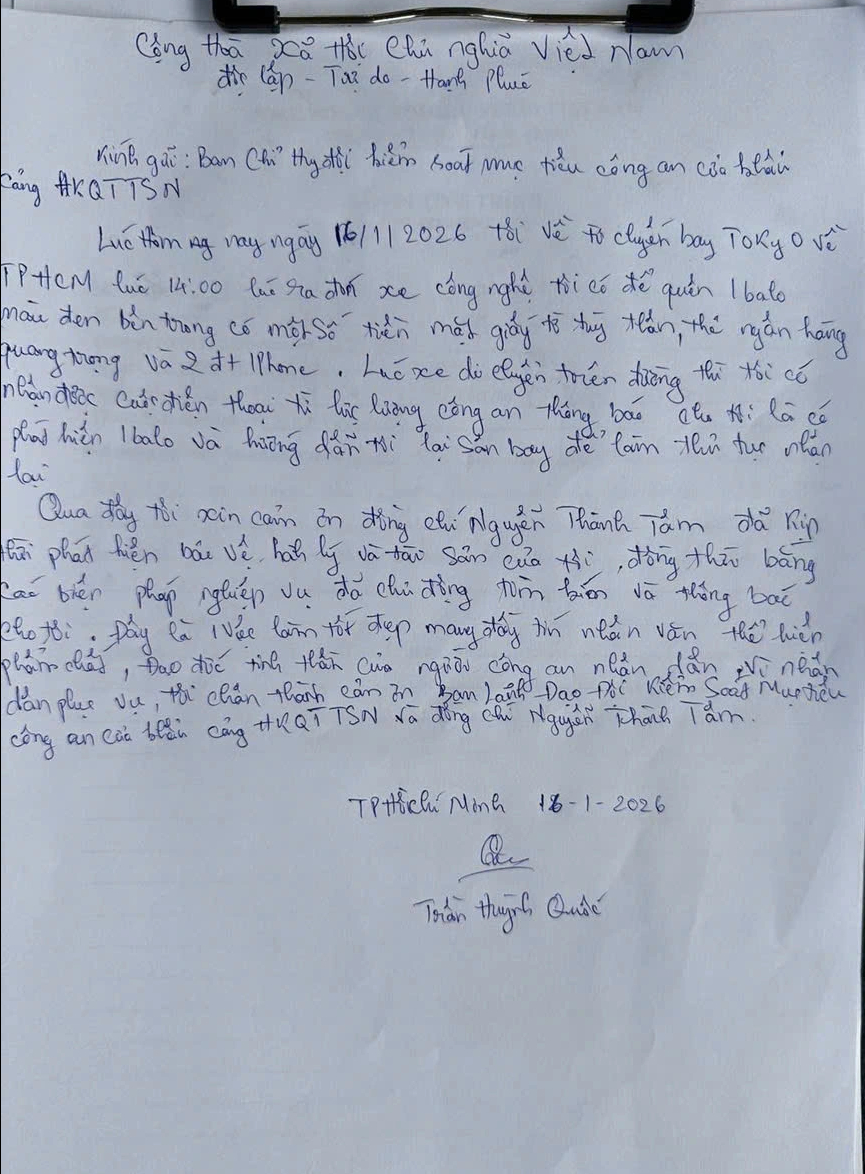 Cộng Hoà Xã Hội Chủ nghĩa Việt Nam
độc lập - Tự do - Hạnh Phúc
Kính gửi: Ban Chỉ Huy đội kiểm soát mục tiêu công an cửa khẩu
Cảng HKQTTSN
Lúc Hôm ng nay ngày 16/1/2026 tôi về từ chuyến bay TOKYO về
TPHCM lúc 14:00 lúc ra đón xe công nghệ tôi có để quên 1 balo
màu đen bên trong có một số tiền mặt giấy tờ tuỳ thân, thẻ ngân hàng
quang trọng và 2 đt IPhone. Lúc xe di chuyển trên đường thì tôi có
nhận được cuộc điện thoại từ lực lượng công an thông báo cho tôi là có
phát hiện 1 balo và hướng dẫn tôi lại sân bay để làm thủ tục nhận
lại
Qua đây tôi xin cảm ơn đồng chí Nguyễn Thành Tâm đã kịp
thời phát hiện bảo vệ hành lý và tài sản của tôi, đồng thời bằng
các biện pháp nghiệp vụ đã chủ động tìm kiếm và thông báo
cho tôi. Đây là 1 việc làm tốt đẹp mang đầy tính nhân văn thể hiện
phẩm chất, Đạo đức tinh thần của người công an nhân dân, vì nhân
dân phục vụ, tôi chân thành cảm ơn Ban Lãnh Đạo Đội Kiểm Soát Mục tiêu
công an cửa khẩu cảng HKQT TSN và đồng chí Nguyễn Thành Tâm.
TP Hồ Chí Minh 16-1-2026
Trần Huỳnh Quốc